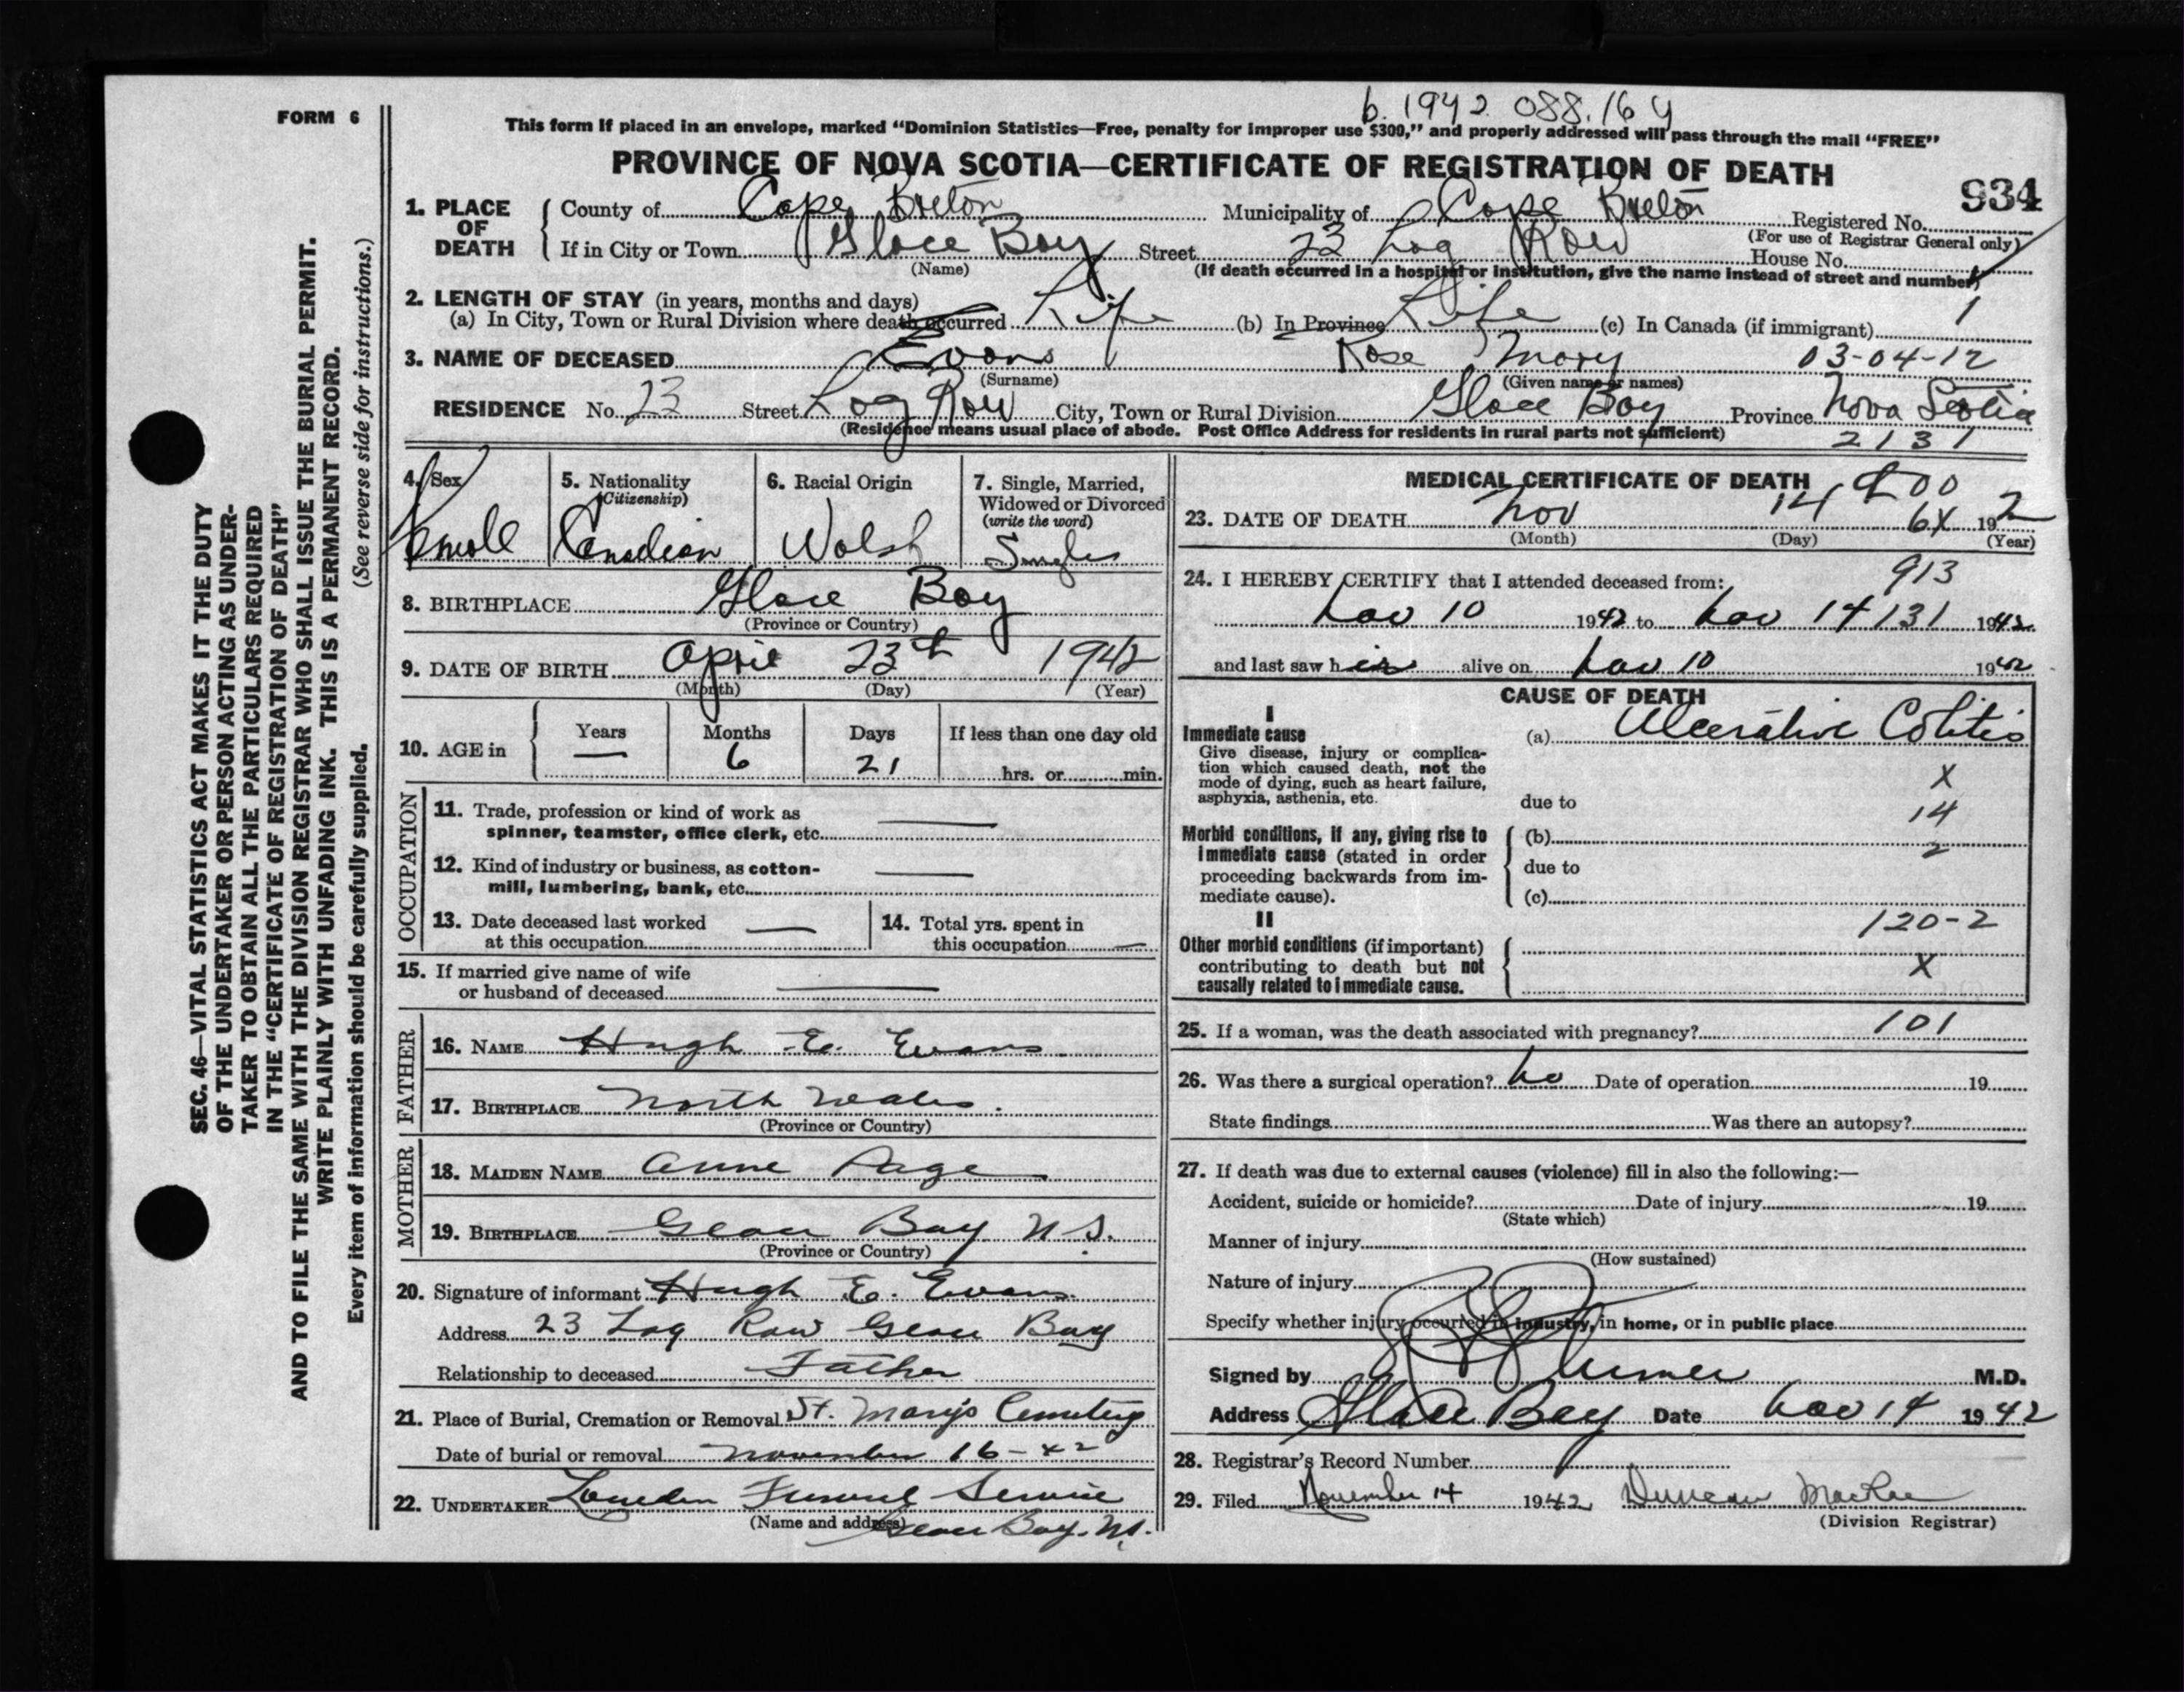 b. 1942 088.164
FORM 6
This form if placed in an envelope, marked “Dominion Statistics—Free, penalty for improper use $300,” and properly addressed will pass through the mail “FREE”
PROVINCE OF NOVA SCOTIA—CERTIFICATE OF REGISTRATION OF DEATH
934
SEC. 46—VITAL STATISTICS ACT MAKES IT THE DUTY
OF THE UNDERTAKER OR PERSON ACTING AS UNDER-
TAKER TO OBTAIN ALL THE PARTICULARS REQUIRED
IN THE “CERTIFICATE OF REGISTRATION OF DEATH”
AND TO FILE THE SAME WITH THE DIVISION REGISTRAR WHO SHALL ISSUE THE BURIAL PERMIT.
WRITE PLAINLY WITH UNFADING INK. THIS IS A PERMANENT RECORD.
Every item of information should be carefully supplied. (See reverse side for instructions.)
1. PLACE OF DEATH
County of Cape Breton Municipality of Cape Breton Registered No.
(For use of Registrar General only)
If in City or Town Glace Bay Street 23 Log Row House No.
(Name) (If death occurred in a hospital or institution, give the name instead of street and number)
2. LENGTH OF STAY (in years, months and days)
(a) In City, Town or Rural Division where death occurred Life (b) In Province Life (c) In Canada (if immigrant) 1
3. NAME OF DECEASED Evans Rose Mary 03-04-12
(Surname) (Given name or names)
RESIDENCE No. 23 Street Log Row City, Town or Rural Division Glace Bay Province Nova Scotia
(Residence means usual place of abode. Post Office Address for residents in rural parts not sufficient) 2131
4. Sex Female
5. Nationality (Citizenship) Canadian
6. Racial Origin Welsh
7. Single, Married, Widowed or Divorced (write the word) Single
8. BIRTHPLACE Glace Bay
(Province or Country)
9. DATE OF BIRTH April 23th 1942
(Month) (Day) (Year)
10. AGE in Years — Months 6 Days 21 If less than one day old hrs. or min.
OCCUPATION
11. Trade, profession or kind of work as
spinner, teamster, office clerk, etc. —
12. Kind of industry or business, as cotton-
mill, lumbering, bank, etc. —
13. Date deceased last worked
at this occupation —
14. Total yrs. spent in
this occupation —
15. If married give name of wife
or husband of deceased —
FATHER
16. NAME Hugh E. Evans
17. BIRTHPLACE North Wales.
(Province or Country)
MOTHER
18. MAIDEN NAME Anne Page
19. BIRTHPLACE Glace Bay N.S.
(Province or Country)
20. Signature of informant Hugh E. Evans
Address 23 Log Row Glace Bay
Relationship to deceased Father
21. Place of Burial, Cremation or Removal St. Mary's Cemetery
Date of burial or removal November 16-42
22. UNDERTAKER Funeral Service
(Name and address) Glace Bay. N.S.
MEDICAL CERTIFICATE OF DEATH
00
23. DATE OF DEATH Nov 14 6X 1942
(Month) (Day) (Year)
913
24. I HEREBY CERTIFY that I attended deceased from:
Nov 10 1942 to Nov 14 131 1942
and last saw her alive on Nov 10 1942
CAUSE OF DEATH
I
Immediate cause
Give disease, injury or complica-
tion which caused death, not the
mode of dying, such as heart failure,
asphyxia, asthenia, etc.
(a) Ulcerative Colitis
X
due to
14
Morbid conditions, if any, giving rise to
immediate cause (stated in order
proceeding backwards from im-
mediate cause).
(b)
2
due to
(c)
II
120-2
Other morbid conditions (if important)
contributing to death but not
causally related to immediate cause.
X
25. If a woman, was the death associated with pregnancy? 101
26. Was there a surgical operation? No Date of operation 19
State findings Was there an autopsy?
27. If death was due to external causes (violence) fill in also the following:—
Accident, suicide or homicide? Date of injury 19
(State which)
Manner of injury
(How sustained)
Nature of injury
Specify whether injury occurred in industry, in home, or in public place
Signed by M.D.
Address Glace Bay Date Nov 14 1942
28. Registrar's Record Number
29. Filed November 14 1942 Duncan MacRae
(Division Registrar)